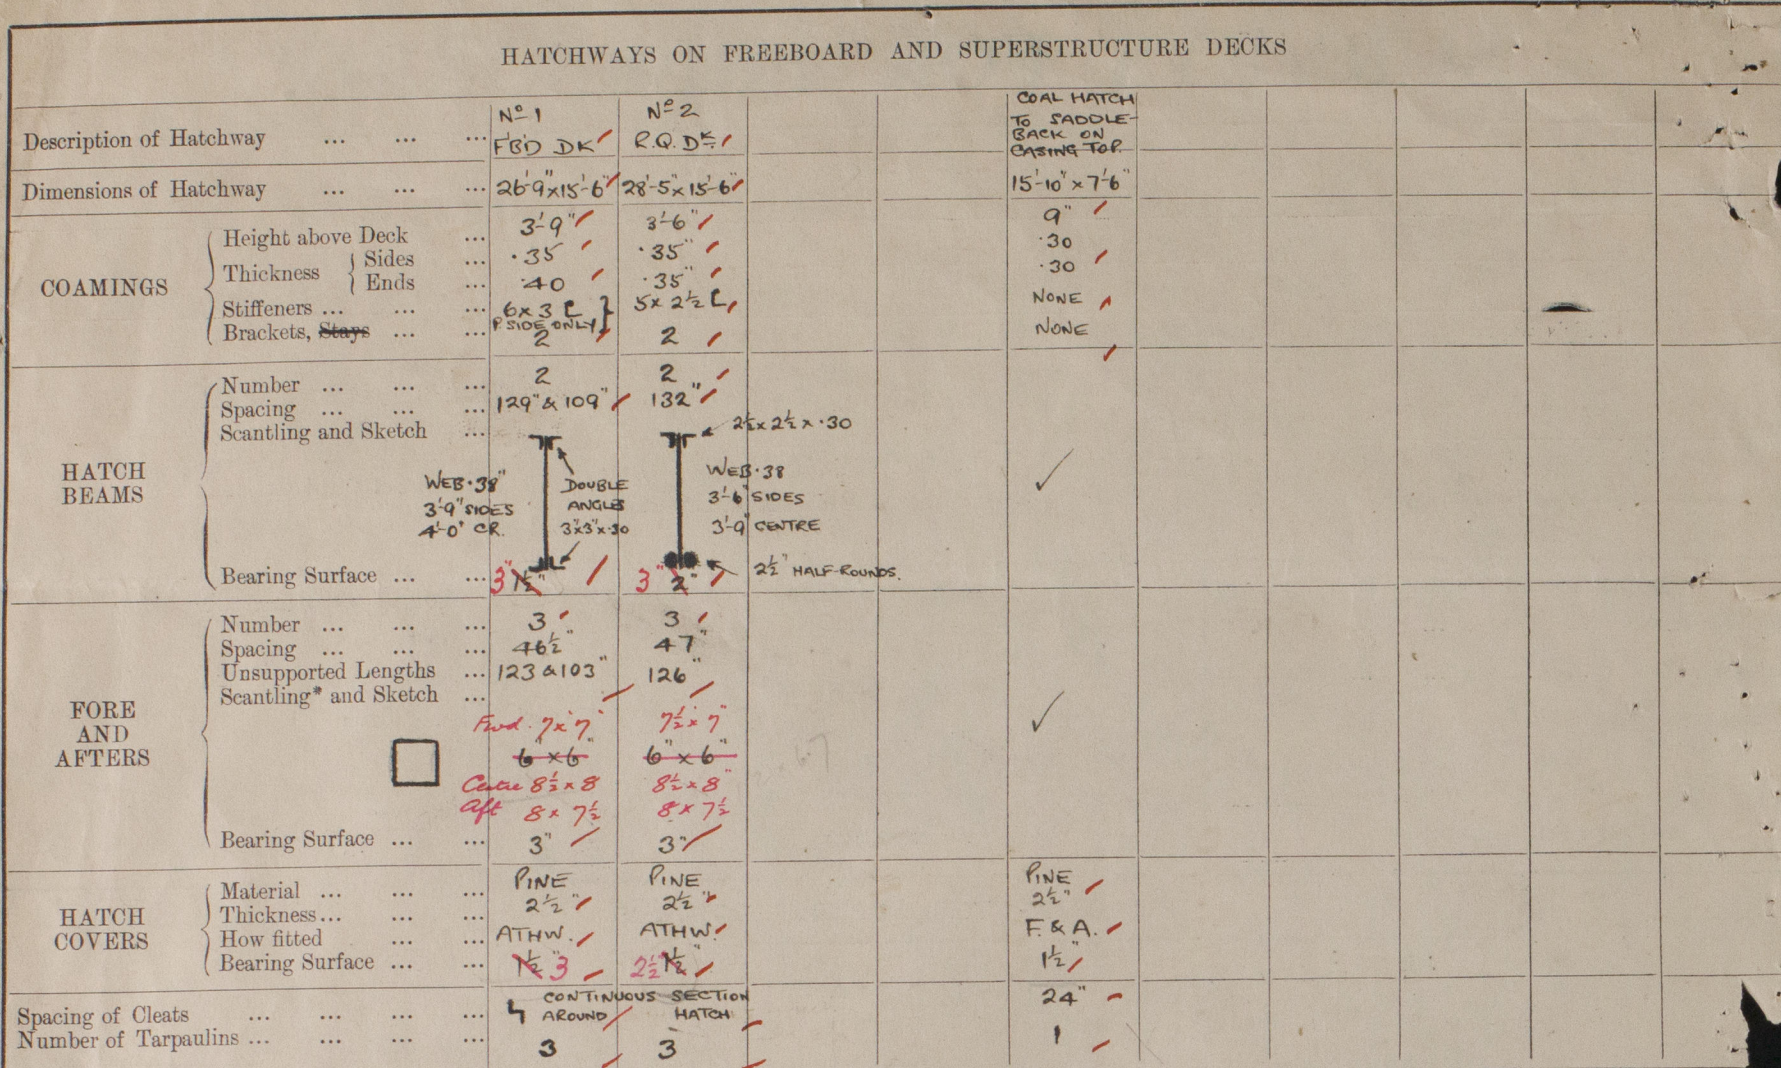 HATCHWAYS ON FREEBOARD AND SUPERSTRUCTURE DECKS
Description of Hatchway ... ... ... Nº 1 FBD DK Nº 2 R.Q. DK. COAL HATCH TO SADDLE-BACK ON CASING TOP.
Dimensions of Hatchway ... ... ... 26'-9" x 15'-6" 28'-5" x 15'-6" 15'-10" x 7'-6"
COAMINGS
Height above Deck ... 3'-9" 3'-6" 9"
Thickness Sides ... .35 .35" .30
Ends ... .40 .35" .30
Stiffeners ... ... ... 6 x 3 [ P. SIDE ONLY } 5 x 2½ [ NONE
Brackets, Stays ... ... 2 2 NONE
HATCH BEAMS
Number ... ... ... 2 2
Spacing ... ... ... 129" & 109" 132"
Scantling and Sketch ... 2½ x 2½ x .30
WEB .38" DOUBLE WEB .38
3'-9" SIDES ANGLES 3'-6" SIDES
4'-0" CR. 3" x 3" x .30 3'-9" CENTRE
2½" HALF-ROUNDS.
Bearing Surface ... ... 3" 1½" 3" 2"
FORE AND AFTERS
Number ... ... ... 3 3
Spacing ... ... ... 46½" 47"
Unsupported Lengths ... 123 & 103" 126"
Scantling* and Sketch ...
Fwd. 7 x 7" 7½ x 7"
6" x 6" 6" x 6"
Centre 8½ x 8 8½ x 8"
Aft 8 x 7½ 8 x 7½
Bearing Surface ... ... 3" 3"
HATCH COVERS
Material ... ... ... PINE PINE PINE
Thickness ... ... ... 2½" 2½" 2½"
How fitted ... ... ATHW. ATHW. F. & A.
Bearing Surface ... ... 1½" 3 2½ 1½" 1½"
Spacing of Cleats ... ... ... ... CONTINUOUS SECTION AROUND HATCH 24"
Number of Tarpaulins ... ... ... ... 3 3 1